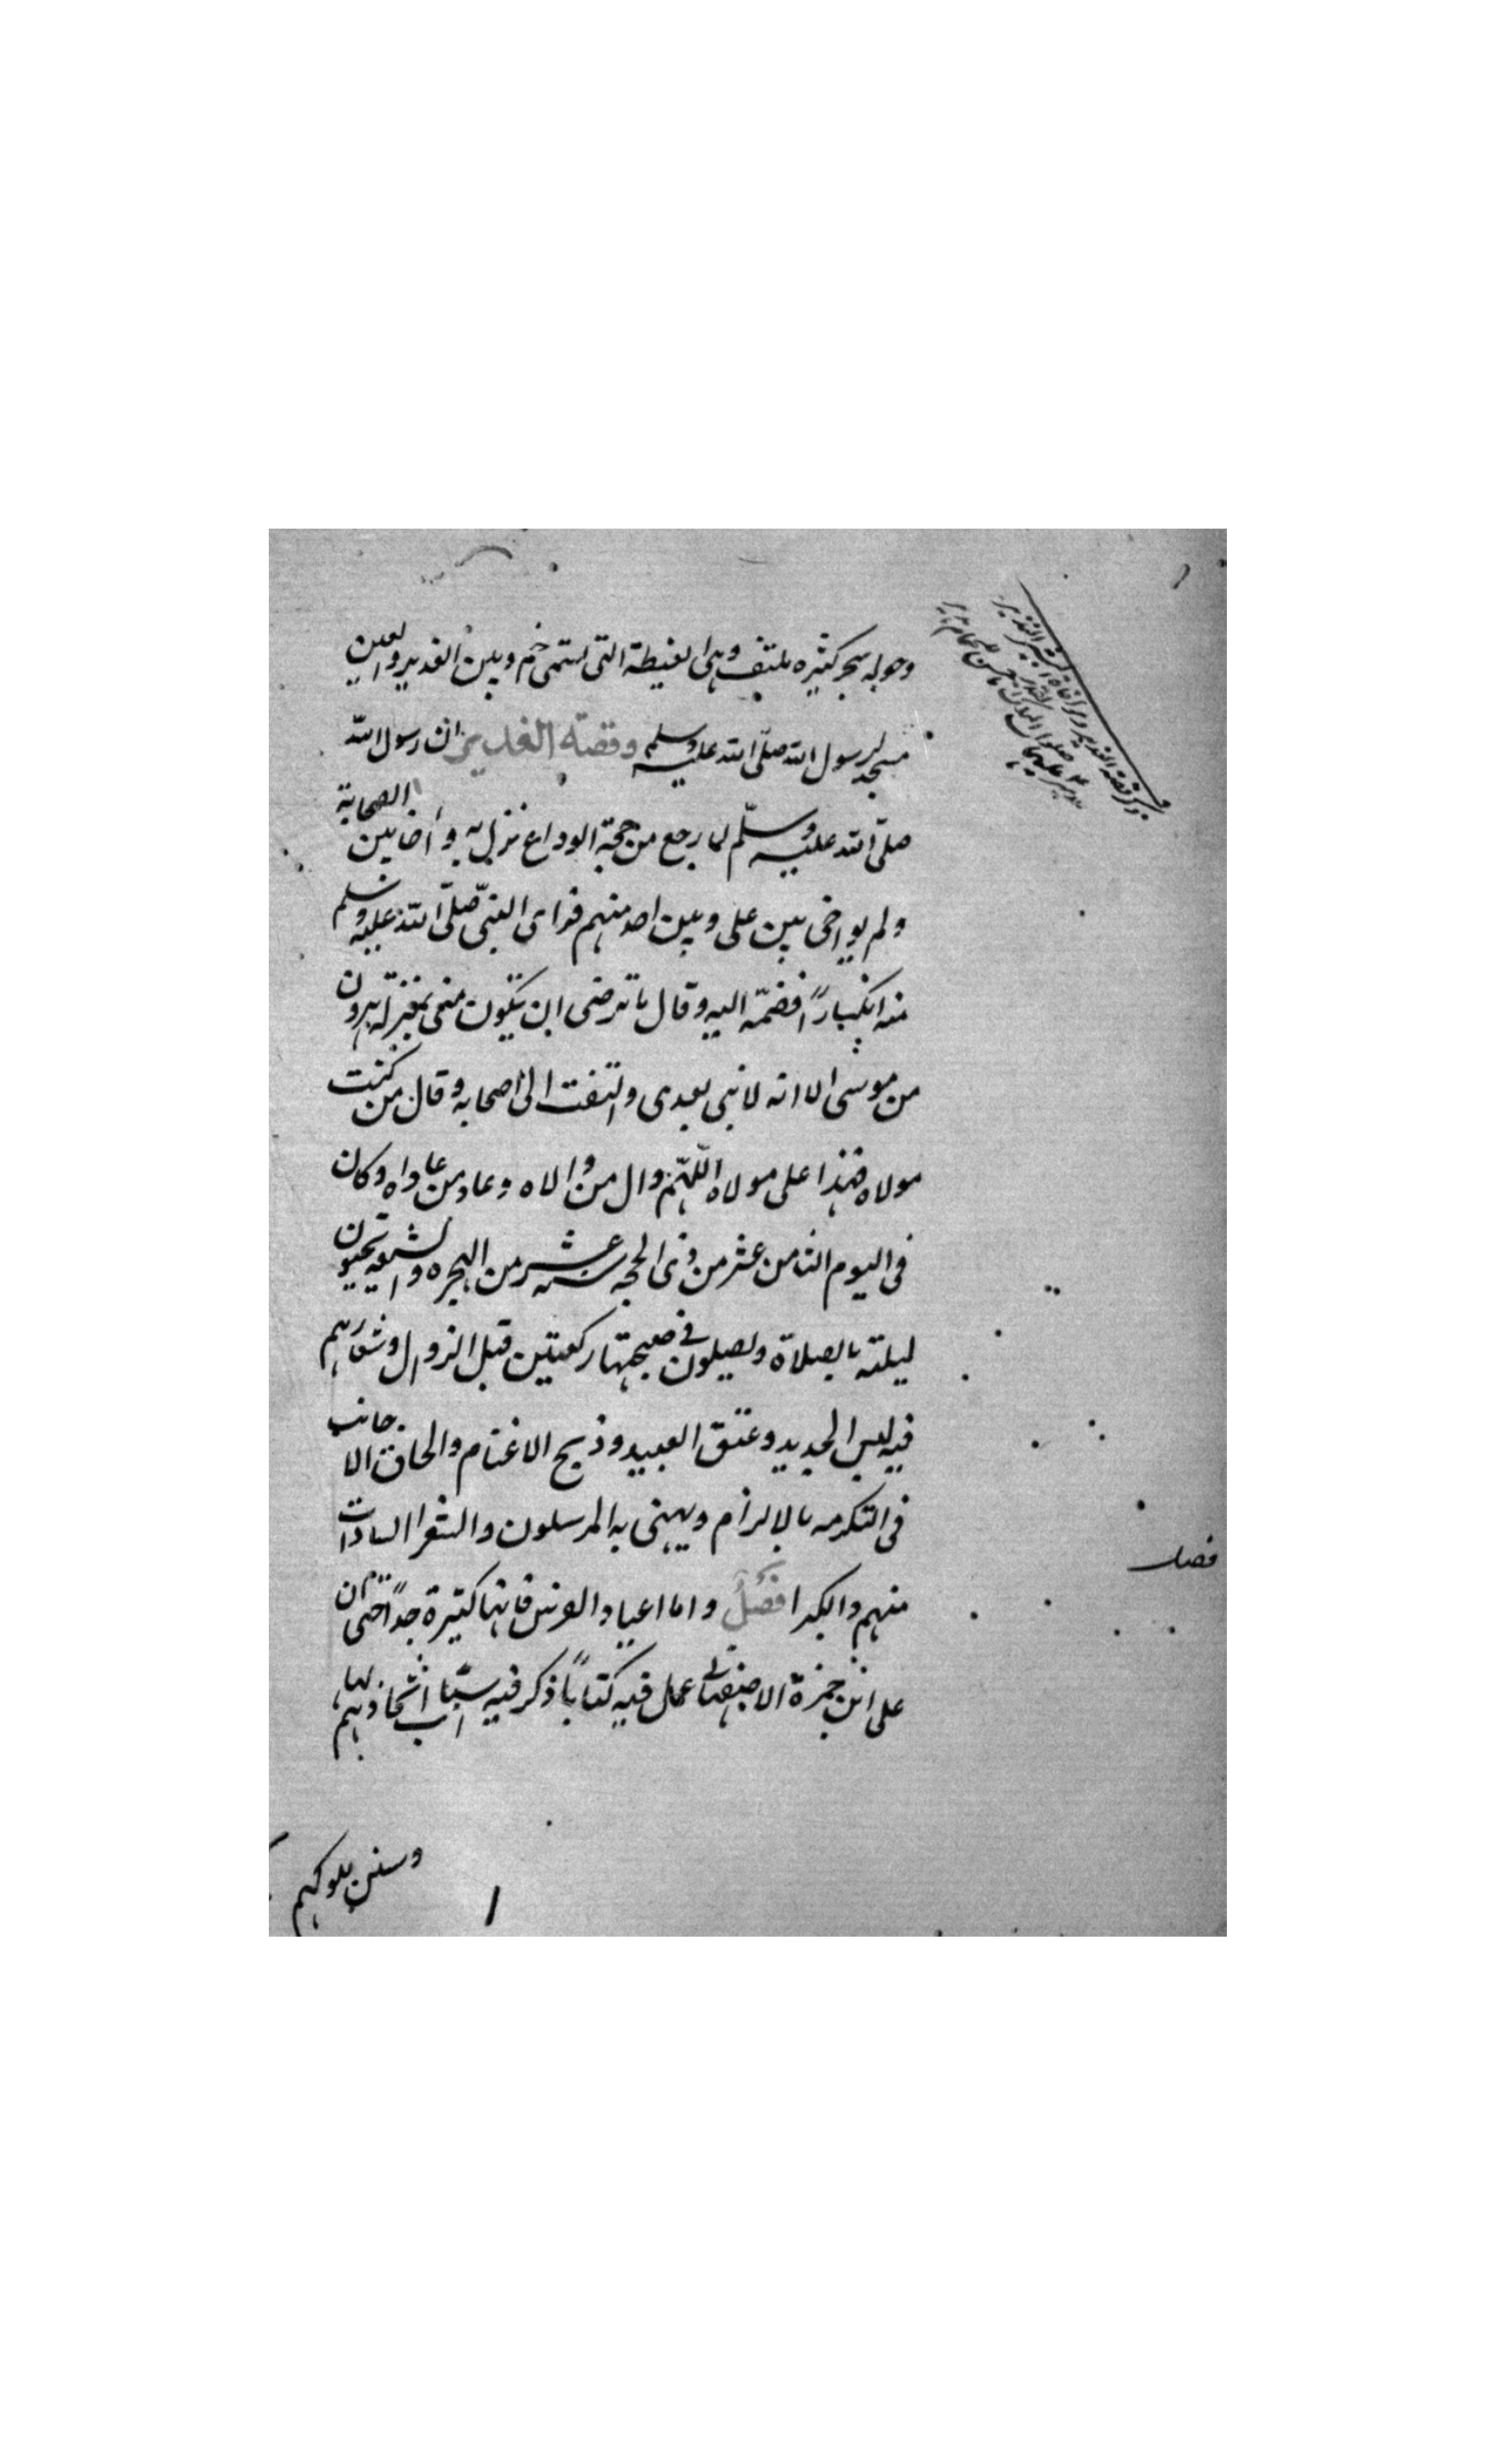 وحوله شجر كثيره ملتف وهى الغيطة التى تسمى خم وبين الغدير والعين
مسجد لرسول الله صلى الله عليه وسلم وقصة الغدير ان رسول الله
صلى الله عليه وسلم لما رجع من حجة الوداع نزل به و أخا بين الصحابة
ولم يواخى بين على وبين احد منهم فراى النبى صلى الله عليه وسلم
منه انكسارًا فضمّه اليه وقال ما ترضى ان تكون منى بمنزله هرون
من موسى الا انه لا نبى بعدى والتفت الى اصحابه وقال من كنت
مولاه فهذا على مولاه اللهم وال من والاه وعاد من عاداه وكان
فى اليوم الثامن عشر من ذى الحجه سنه عشر من الهجره والشيعه تحيون
ليلته بالصلاة ويصلون في صبيحتها ركعتين قبل الزوال وشعارهم
فيه لبس الجديد وعتق العبيد وذبح الاغنام والحاق الاجانب
فى التكرمه بالالزام ويهنى به المرسلون والشعرا السادات
منهم والكبرا فصل واما اعياد الفرس فانها كثيرة جدًا حتى ان
على ابن حمزة الاصفهانى عمل فيه كتابًا ذكر فيه اسباب اتخاذهم لها
وسنن ملوكهم
فصل